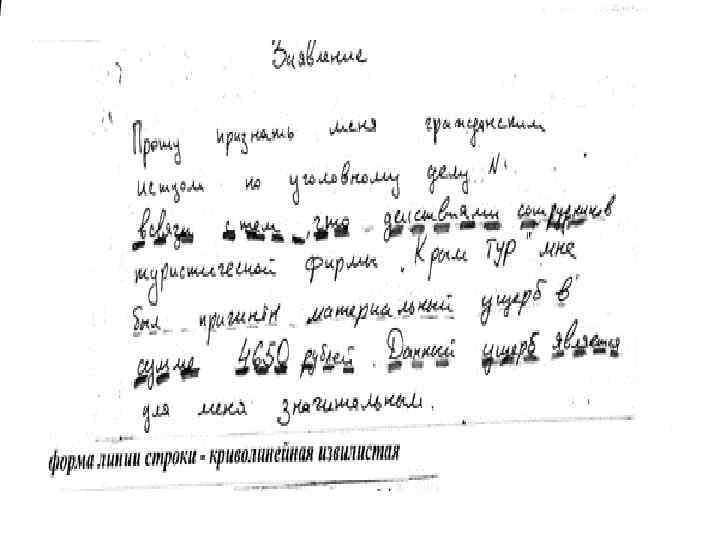 Заявление
Прошу признать меня гражданским
истцом по уголовному делу №
всвязи с тем, что действиями сотрудников
туристической фирмы "Крым Тур" мне
был причинён материальный ущерб в
сумме 4650 рублей. Данный ущерб является
для меня значительным.
форма линии строки - криволинейная извилистая